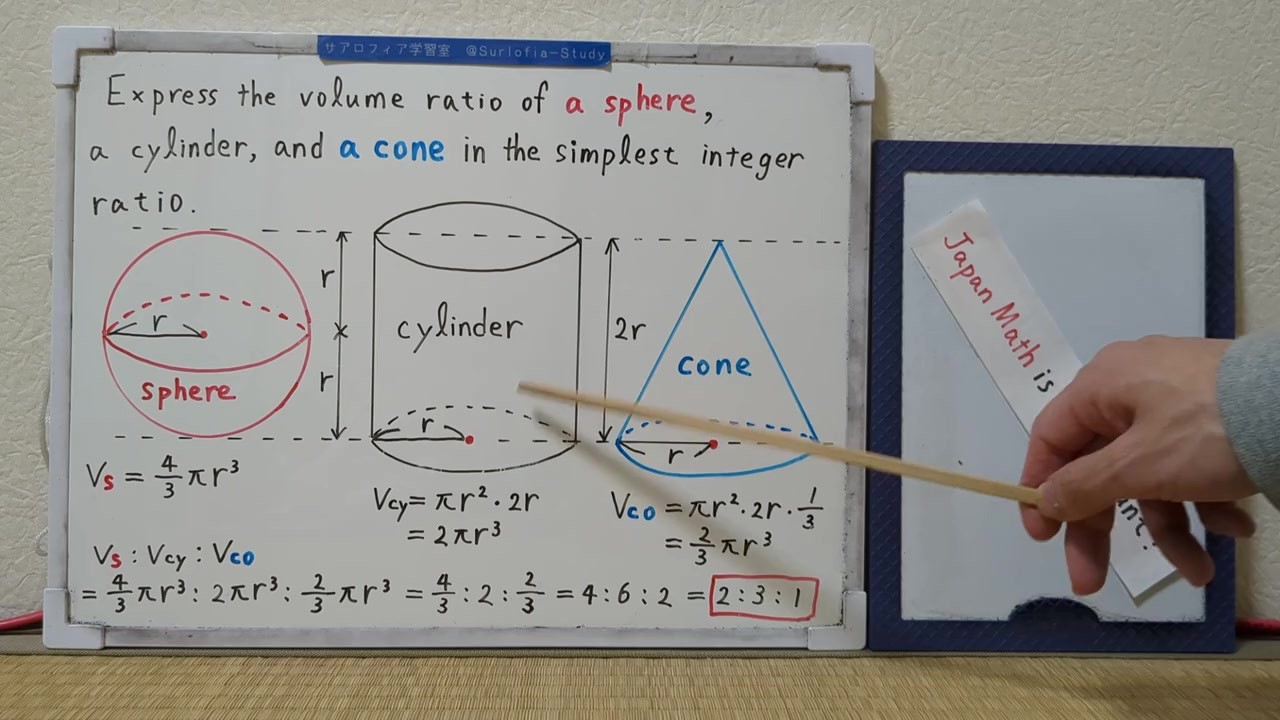 サアロフィア学習室 @Surlofia-Study
Express the volume ratio of a sphere,
a cylinder, and a cone in the simplest integer
ratio.
r
sphere
r
r
cylinder
r
2r
cone
r
Vs = 4/3 πr³
Vcy = πr²・2r
= 2πr³
Vco = πr²・2r・1/3
= 2/3 πr³
Vs : Vcy : Vco
= 4/3 πr³ : 2πr³ : 2/3 πr³ = 4/3 : 2 : 2/3 = 4 : 6 : 2 = 2 : 3 : 1
Japan Math is